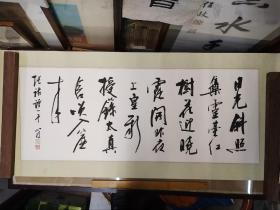 日光斜照
集靈臺紅
樹花迎曉
露開昨夜
上皇新
授籙太真
含笑入簾
来
張祜詩